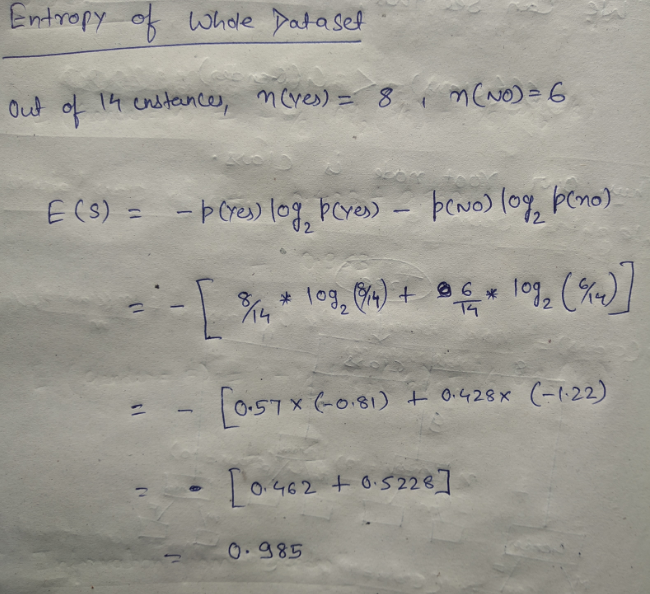 Entropy of Whole Dataset
Out of 14 instances, n(Yes) = 8 , n(NO) = 6
E(S) = - p(Yes) log₂ p(Yes) - p(NO) log₂ p(no)
= - [ 8/14 * log₂ (8/14) + 6/14 * log₂ (6/14) ]
= - [ 0.57 x (-0.81) + 0.428 x (-1.22)
= - [ 0.462 + 0.5228 ]
= 0.985